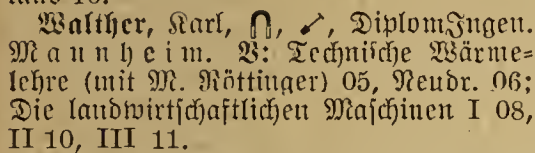 Walther, Karl, DiplomIngen.
Mannheim. V: Technische Wärme=
lehre (mit M. Röttinger) 05, Neudr. 06;
Die landwirtschaftlichen Maschinen I 08,
II 10, III 11.